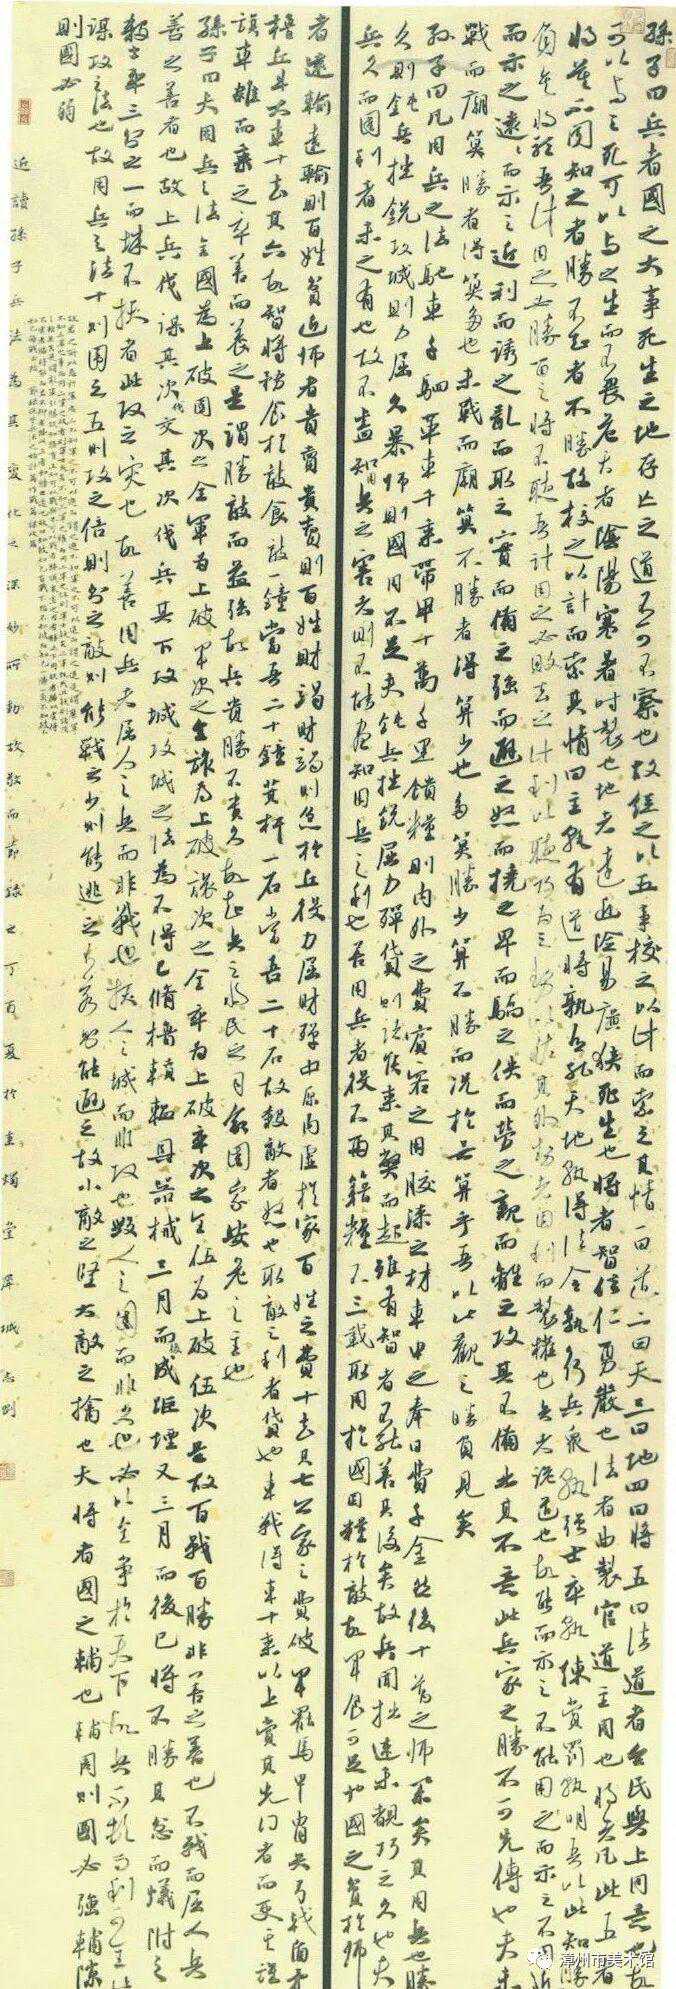 孫子曰兵者國之大事死生之地存亡之道不可不察也故經之以五事校之以計而索其情一曰道二曰天三曰地四曰將五曰法道者令民與上同意也故
可以與之死可以與之生而不畏危天者陰陽寒暑時製也地者遠近險易廣狹死生也將者智信仁勇嚴也法者曲製官道主用也將者凡此五者
將莫不聞知之者勝不知者不勝故校之以計而索其情曰主孰有道將孰有能天地孰得法令孰行兵衆孰强士卒孰練賞罰孰明吾以此知勝
負矣將聽吾計用之必勝留之將不聽吾計用之必敗去之計利以聽乃為之勢以佐其外勢者因利而製權也兵者詭道也故能而示之不能用之而示之不用近
而示之遠遠而示之近利而誘之亂而取之實而備之强而避之怒而撓之卑而驕之佚而勞之親而離之攻其不備出其不意此兵家之勝不可先傳也夫未
戰而廟算勝者得算多也未戰而廟算不勝者得算少也多算勝少算不勝而況於無算乎吾以此觀之勝負見矣
孫子曰凡用兵之法馳車千駟革車千乘帶甲十萬千里饋糧則內外之費賓客之用膠漆之材車甲之奉日費千金然後十萬之師舉矣其用兵也勝
久則鈍兵挫銳攻城則力屈久暴師則國用不足夫鈍兵挫銳屈力殫貨則諸侯乘其弊而起雖有智者不能善其後矣故兵聞拙速未覩巧之久也夫
兵久而國利者未之有也故不盡知用兵之害者則不能盡知用兵之利也善用兵者役不再籍糧不三載取用於國因糧於敵故軍食可足也國之貧於師
者遠輸遠輸則百姓貧近師者貴賣貴賣則百姓財竭財竭則急於丘役力屈財殫中原內虛於家百姓之費十去其七公家之費破軍罷馬甲胄矢弓戟盾矛
櫓丘牛大車十去其六故智將務食於敵食敵一鐘當吾二十鐘萁秆一石當吾二十石故殺敵者怒也取敵之利者貨也車戰得車十乘以上賞其先得者而更其旌
旗車雜而乘之卒善而養之是謂勝敵而益強故兵貴勝不貴久故知兵之將民之司命國家安危之主也
孫子曰夫用兵之法全國為上破國次之全軍為上破軍次之全旅為上破旅次之全卒為上破卒次之全伍為上破伍次之是故百戰百勝非善之善也不戰而屈人兵
善之善者也故上兵伐謀其次伐交其次伐兵其下攻城攻城之法為不得已脩櫓轒轀具器械三月而後成距堙又三月而後已將不勝其忿而蟻附之
殺士卒三分之一而城不拔者此攻之災也故善用兵者屈人之兵而非戰也拔人之城而非攻也毀人之國而非久也必以全爭於天下故兵不頓而利可全此
謀攻之法也故用兵之法十則圍之五則攻之倍則分之敵則能戰之少則能逃之不若則能避之故小敵之堅大敵之擒也夫將者國之輔也輔周則國必強輔隙
則國必弱
近讀孫子兵法為其變化之深妙所動故敬而節錄之丁酉夏於
漳州市美术馆